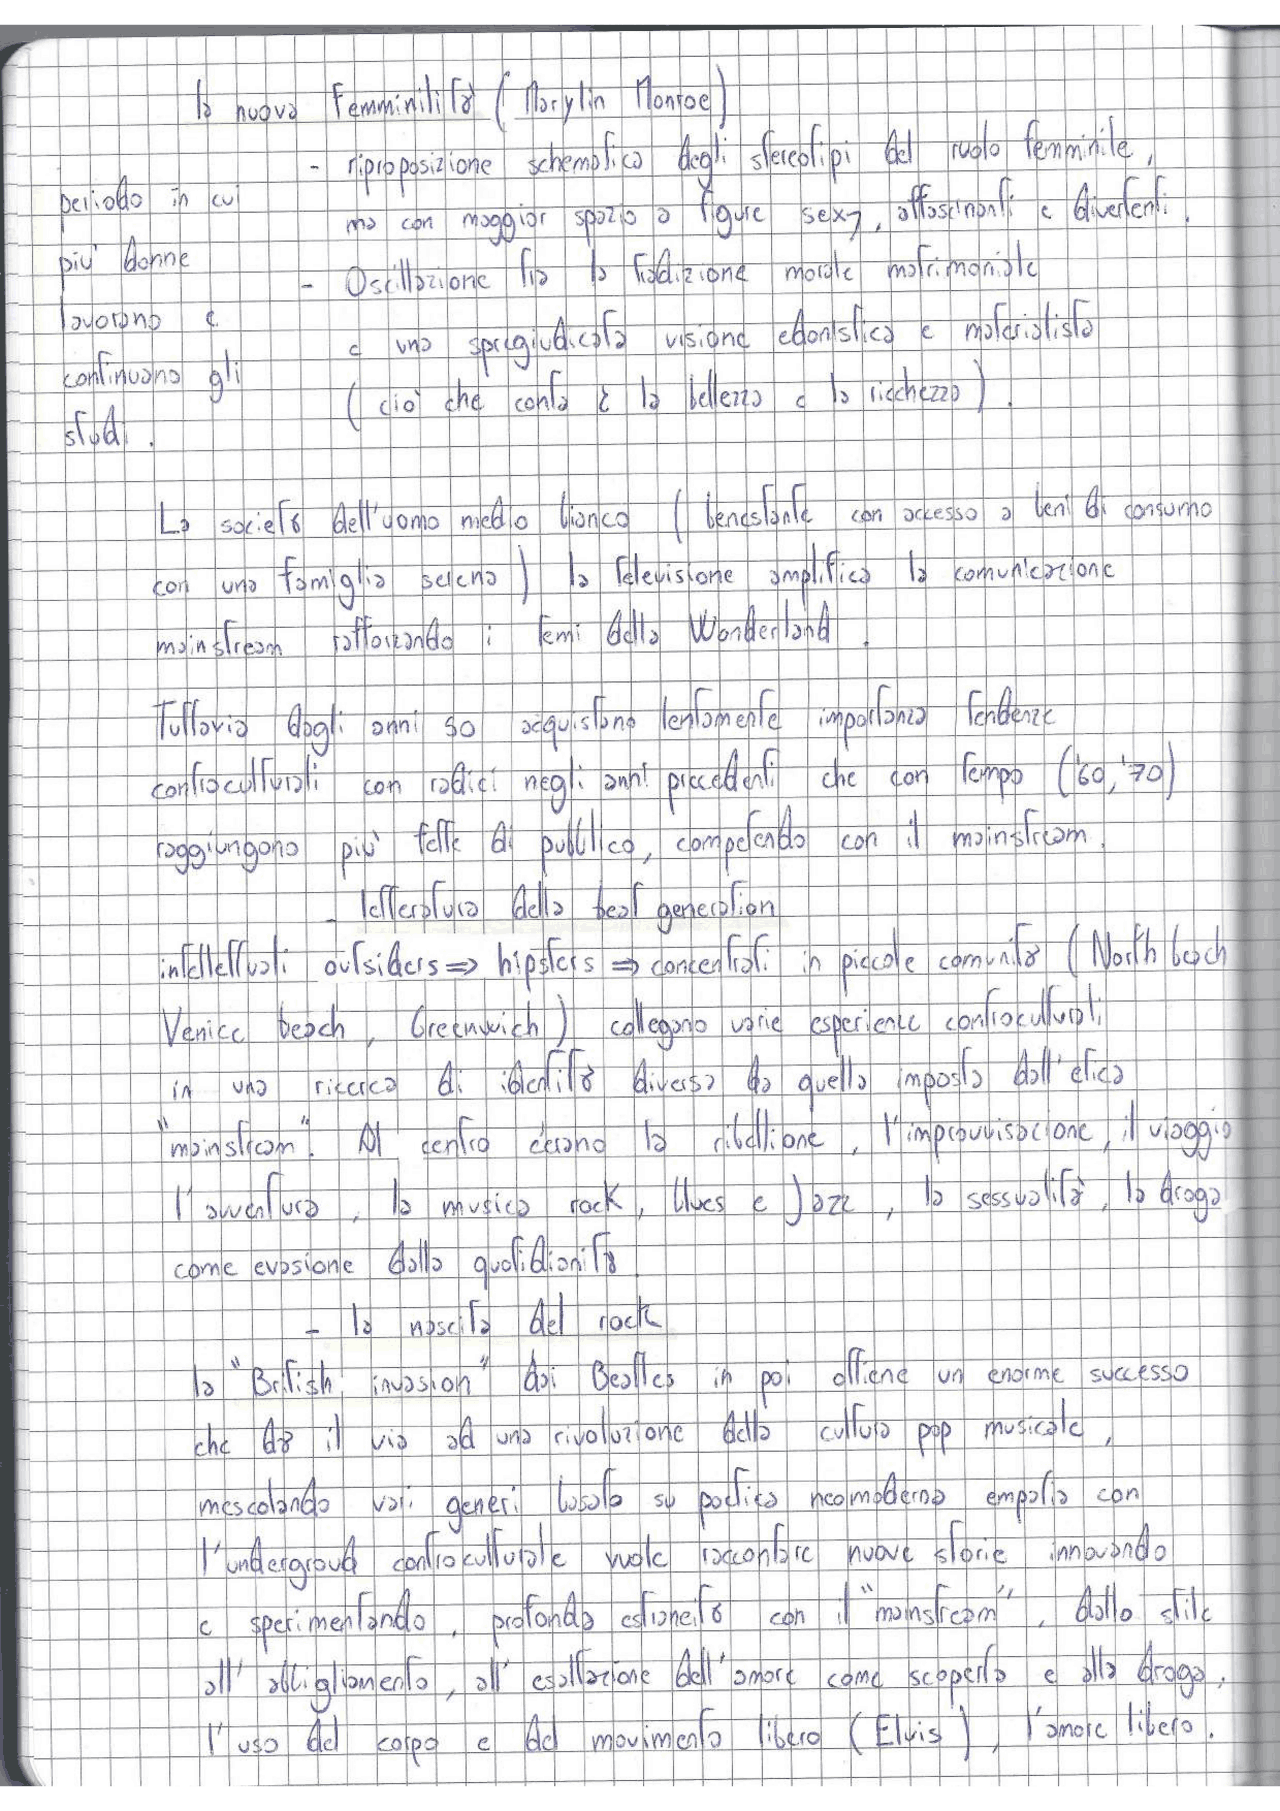 la nuova femminilità (Marylin Monroe)
- riproposizione schematica degli stereotipi del ruolo femminile,
ma con maggior spazio a figure sexy, affascinanti e divertenti.
- Oscillazione fra la tradizione morale matrimoniale
e una spregiudicata visione edonistica e materialista
(ciò che conta è la bellezza e la ricchezza).
periodo in cui
più donne
lavorano e
continuano gli
studi.
La società dell'uomo medio bianco (benestante con accesso a beni di consumo
con una famiglia serena) la televisione amplifica la comunicazione
mainstream rafforzando i temi della Wonderland.
Tuttavia dagli anni 50 acquistano lentamente importanza tendenze
controculturali con radici negli anni precedenti che con tempo ('60, '70)
raggiungono più fette di pubblico, competendo con il mainstream.
- letteratura della beat generation
intellettuali outsiders ⇒ hipsters ⇒ concentrati in piccole comunità (North beach
Venice beach, Greenwich) collegano varie esperienze controculturali
in una ricerca di identità diversa da quella imposta dall'etica
"mainstream". Al centro c'erano la ribellione, l'improvvisazione, il viaggio
l'avventura, la musica rock, blues e Jazz, la sessualità, la droga
come evasione dalla quotidianità.
- la nascita del rock
la "British invasion" dai Beatles in poi ottiene un enorme successo
che dà il via ad una rivoluzione della cultura pop musicale,
mescolando vari generi basata su poetica neomoderna empatia con
l'undergroud controculturale vuole raccontare nuove storie innovando
e sperimentando, profonda estraneità con il "mainstream", dallo stile
all'abbigliamento, all'esaltazione dell'amore come scoperta e alla droga,
l'uso del corpo e del movimento libero (Elvis), l'amore libero.